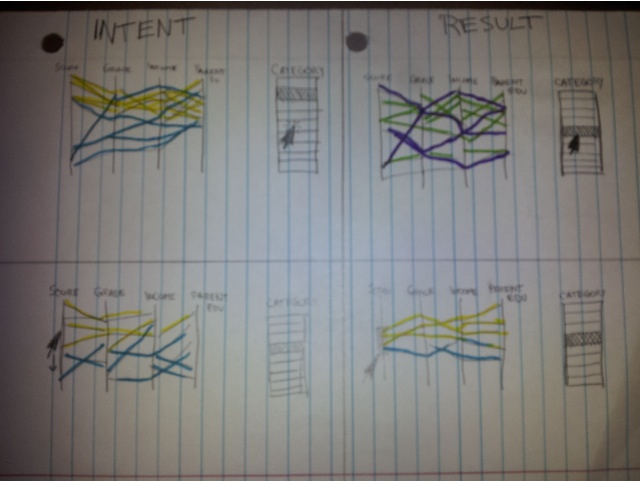 INTENT
RESULT
SCORE GRADE INCOME PARENT
CATEGORY
SCORE GRADE INCOME PARENT EDU
CATEGORY
SCORE GRADE INCOME PARENT EDU
CATEGORY
SCORE GRADE INCOME PARENT EDU
CATEGORY